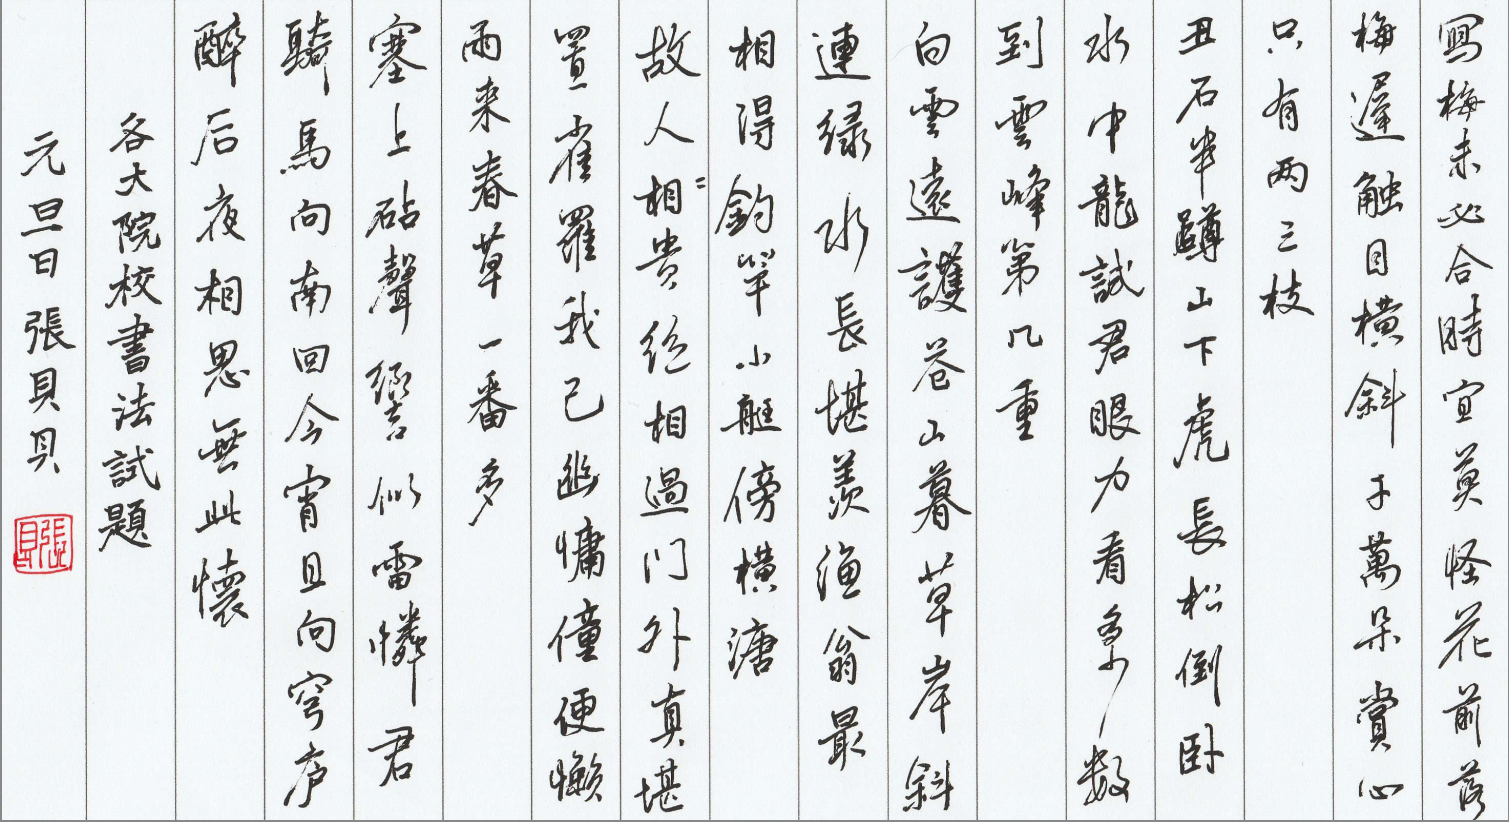 寫梅未必合時宜莫怪花前落
梅遲触目橫斜千萬朵賞心
只有两三枝
丑石半蹲山下虎長松倒卧
水中龍試君眼力看多少数
到雲峰第几重
白雲遠護苍山暮草岸斜
連绿水長堪羡漁翁最
相得釣竿小艇傍橫溏
故人相貴绝相過门外真堪
置雀羅我已幽慵僮便懒
雨来春草一番多
塞上砧聲響似雷憐君
騎馬向南回今宵且向穹庐
醉后夜相思無此懷
各大院校書法試題
元旦日張貝貝
張貝